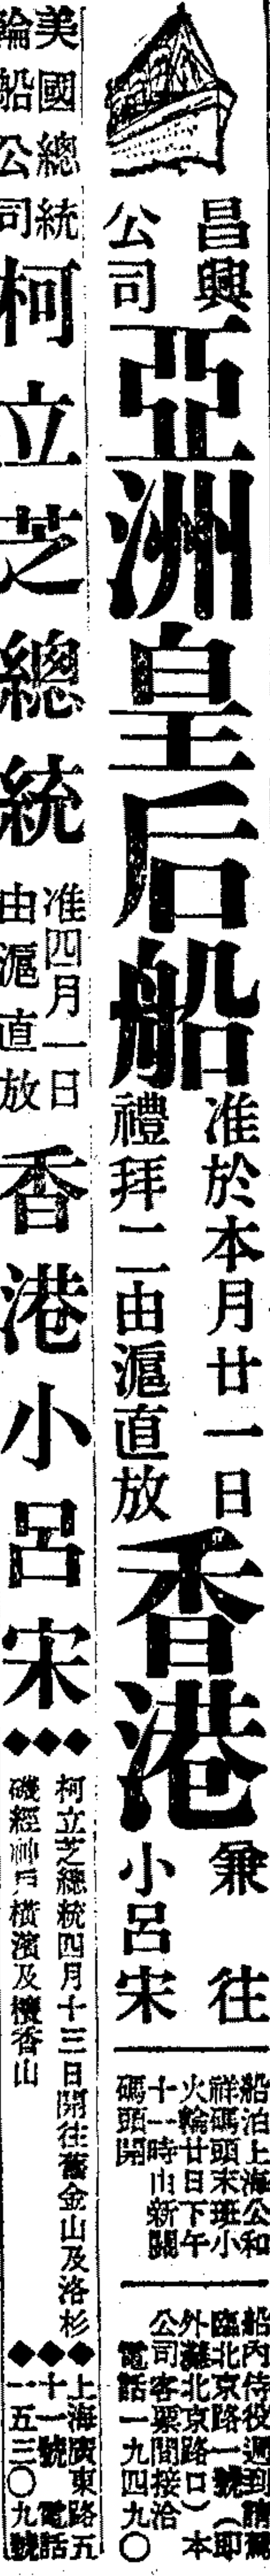 昌興
公司
亞洲皇后船
准於本月廿一日
禮拜二由滬直放
香港
兼往
小呂宋
船泊上海公和
祥碼頭末班小
火輪廿日下午
十一時由新關
碼頭開
船內侍役週到請駕
臨北京路一號（即
外灘北京路口）本
公司客票間接洽
電話一九四九〇
美國總統
輪船公司
柯立芝總統
准四月一日
由滬直放
香港小呂宋
◆◆◆
柯立芝總統四月十三日開往舊金山及洛杉
磯經神戶橫濱及檀香山
◆◆◆
上海廣東路五
十一號 電話
一五三〇九號